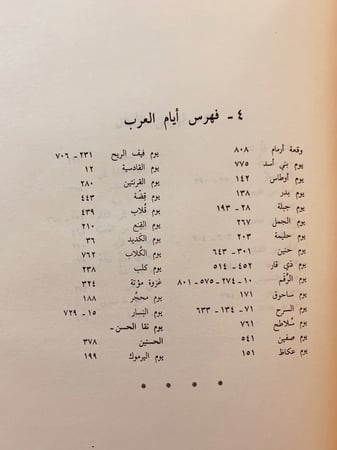 ٤ - فهرس أيام العرب
وقعة أرمام ٨٠٨
يوم بني أسد ٧٧٥
يوم أوطاس ١٤٢
يوم بدر ١٣٨
يوم جبلة ٢٨ - ١٩٣
يوم الجمل ٢٦٧
يوم حليمة ٢٠٣
يوم حنين ٣٠١ - ٦٤٣
يوم ذي قار ٤٥٢ - ٥١٤
يوم الرَّقَم ١٠ - ٢٧٤ - ٥٧٥ - ٨٠١
يوم ساحوق ١٧١
يوم السرح ٧١ - ١٣٤ - ٦٣٣
يوم سُلاطح ٧٦١
يوم صفين ٥٤١
يوم عكاظ ١٥١
يوم فيف الريح ٢٣١ - ٧٠٦
يوم القادسية ١٢
يوم القرنتين ٢٨٠
يوم قِضّة ٤٤٣
يوم قُلاب ٤٣٩
يوم القِنع ٢١٠
يوم الكَديد ٣٦
يوم الكُلاب ٧٦٢
يوم كلب ٢٣٨
غزوة مؤتة ٣٢٤
يوم محجَّر ١٨٨
يوم النِسار ١٥ - ٧٢٩
يوم نقا الحسن -
الحسنين ٣٧٨
يوم اليرموك ١٩٩